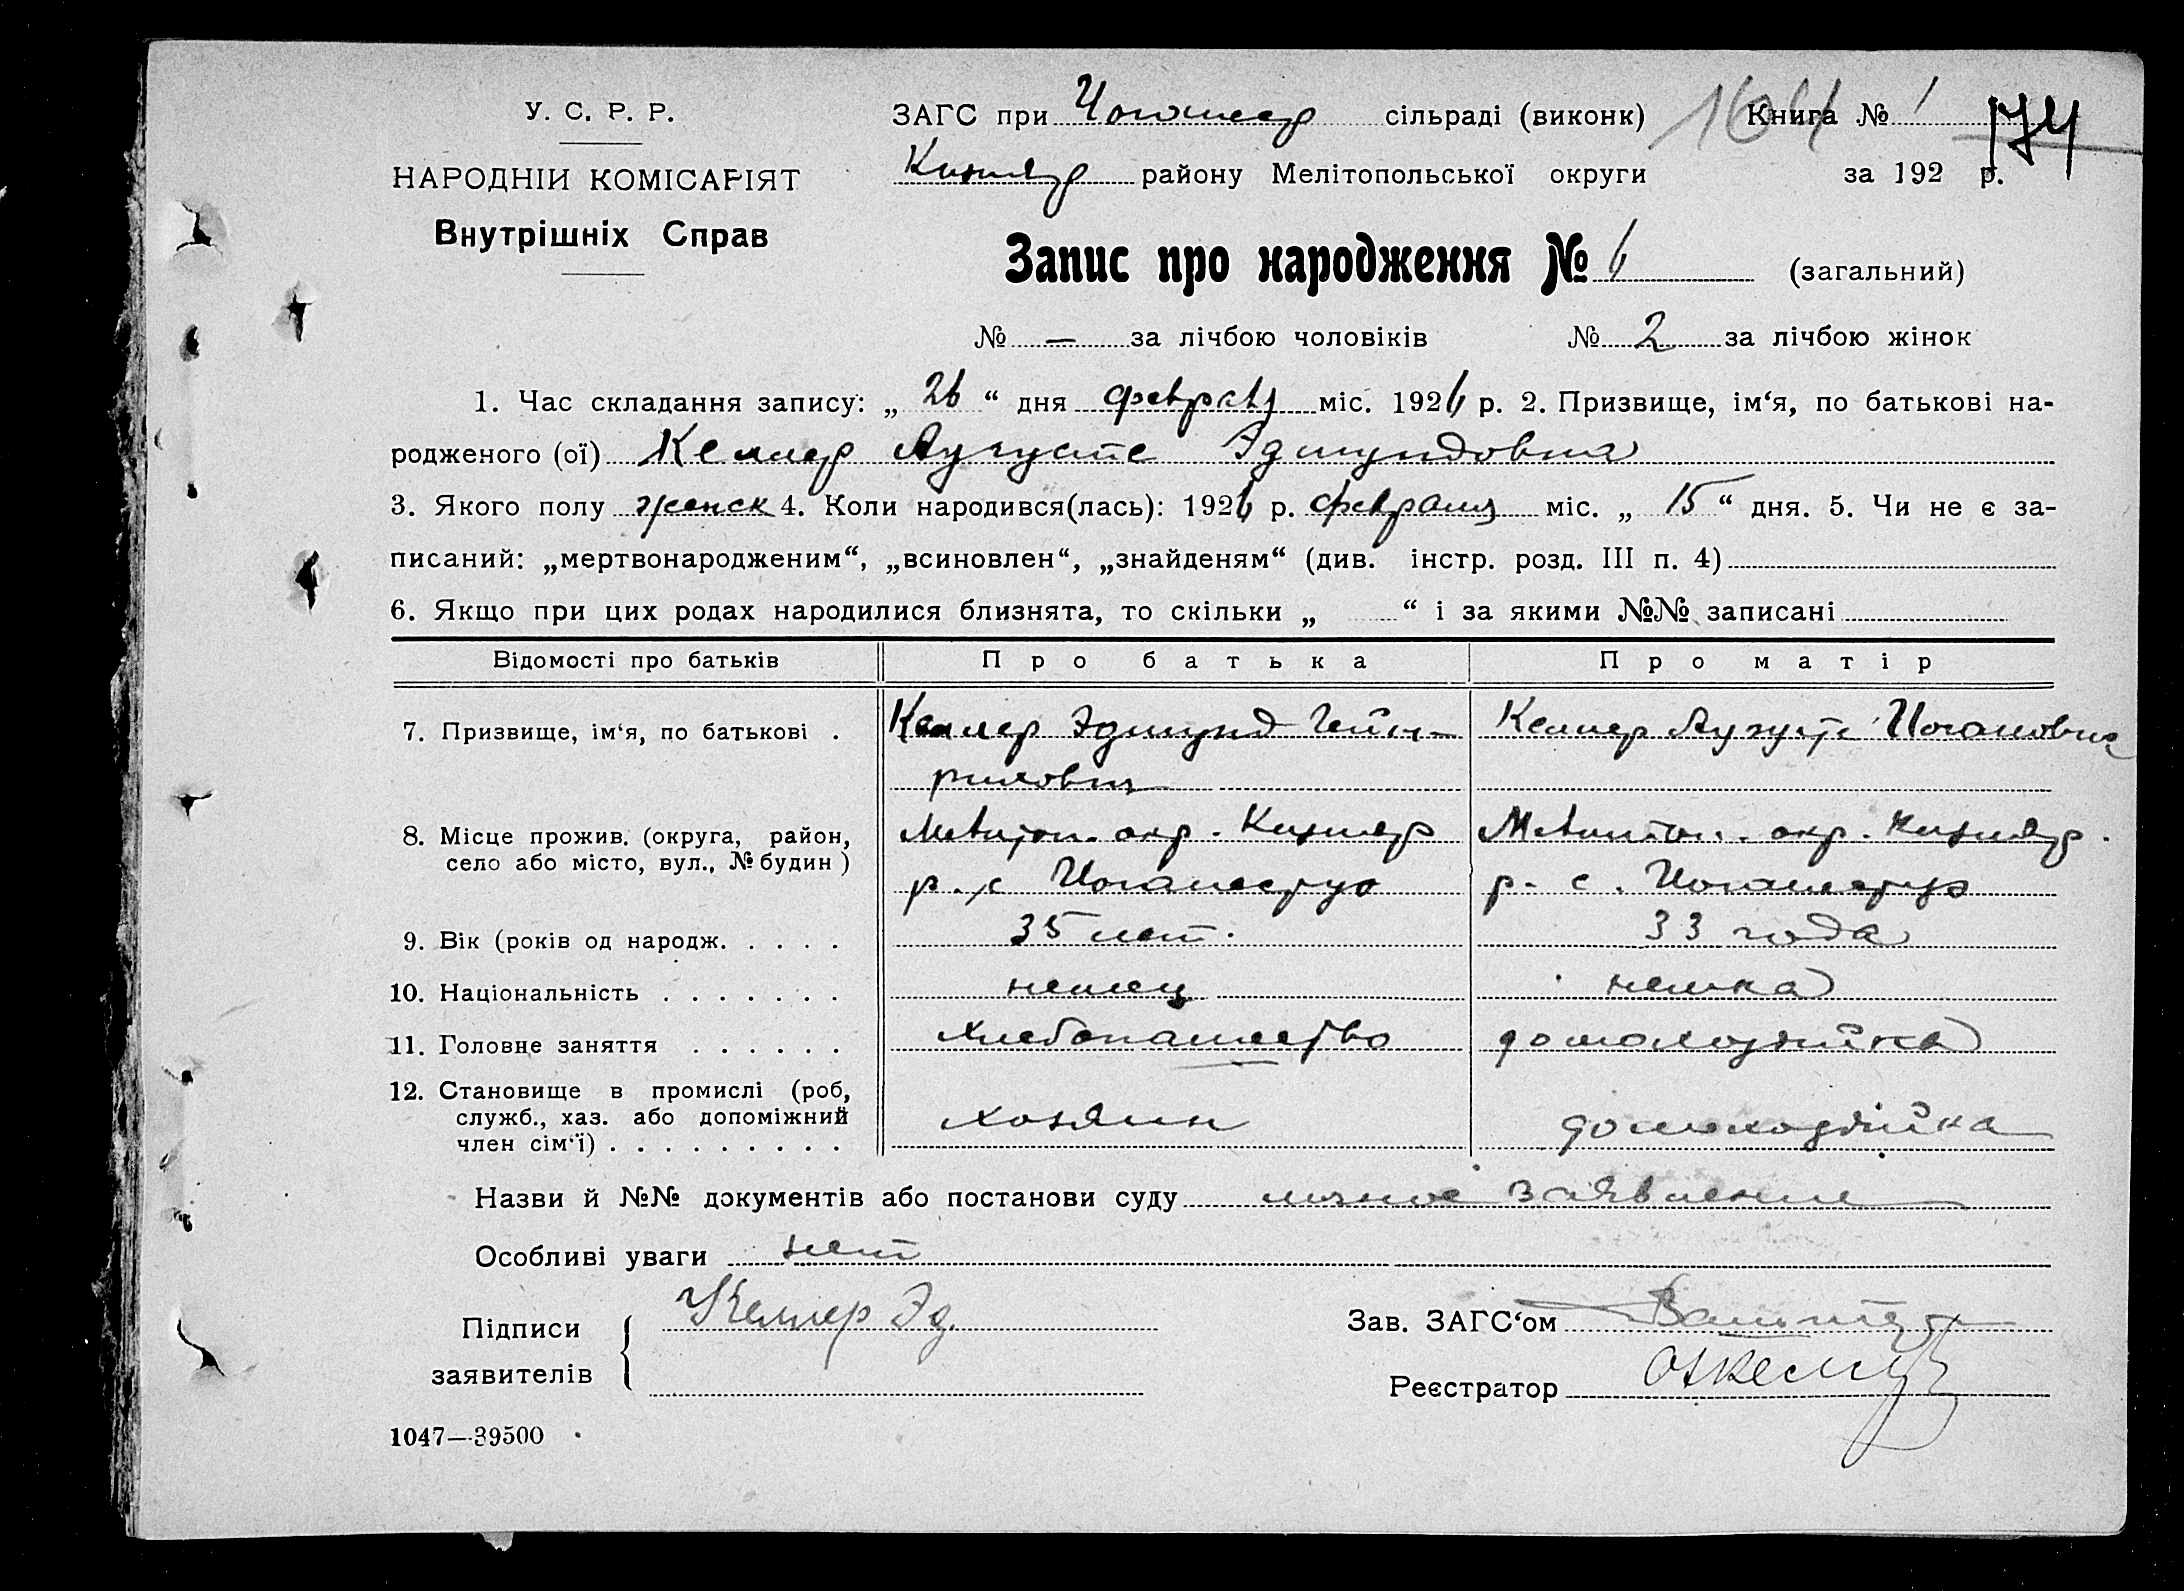 У. С. Р. Р.
НАРОДНІЙ КОМІСАРІЯТ
Внутрішніх Справ
ЗАГС при сільраді (виконк)
Книга № 1
174
району Мелітопольської округи за 192 р.
Запис про народження № 6 (загальний)
№ — за лічбою чоловіків № 2 за лічбою жінок
1. Час складання запису: „ 26 “ дня февраля міс. 1926 р. 2. Призвище, ім‘я, по батькові на-
родженого (ої) Келлер Аугусте Эдмундовна
3. Якого полу женск 4. Коли народився(лась): 1926 р. февраля міс. „ 15 “ дня. 5. Чи не є за-
писаний: „мертвонародженим“, „всиновлен“, „знайденям“ (див. інстр. розд. III п. 4)
6. Якщо при цих родах народилися близнята, то скільки „ “ і за якими №№ записані
Відомості про батьків Про батька Про матір
7. Призвище, ім‘я, по батькові . Келлер Эдмунд Гейн- Келлер Аугусте Иогановна
рихович
8. Місце прожив. (округа, район, Мелитоп. окр. Кизляр Мелитоп. окр. Кизляр.
село або місто, вул., № будин ) р. с Иоганесруэ р. с. Иоганесруэ
9. Вік (років од народж. . . . . 35 лет. 33 года
10. Національність . . . . . . . немец немка
11. Головне заняття . . . . . . хлебопашество домохозяйка
12. Становище в промислі (роб,
служб., хаз. або допоміжний хозяин домохозяйка
член сім‘ї) . . . . . . . . .
Назви й №№ документів або постанови суду личное заявление
Особливі уваги нет
Підписи Келлер Эд. Зав. ЗАГС‘ом
заявителів Реєстратор
1047—39500